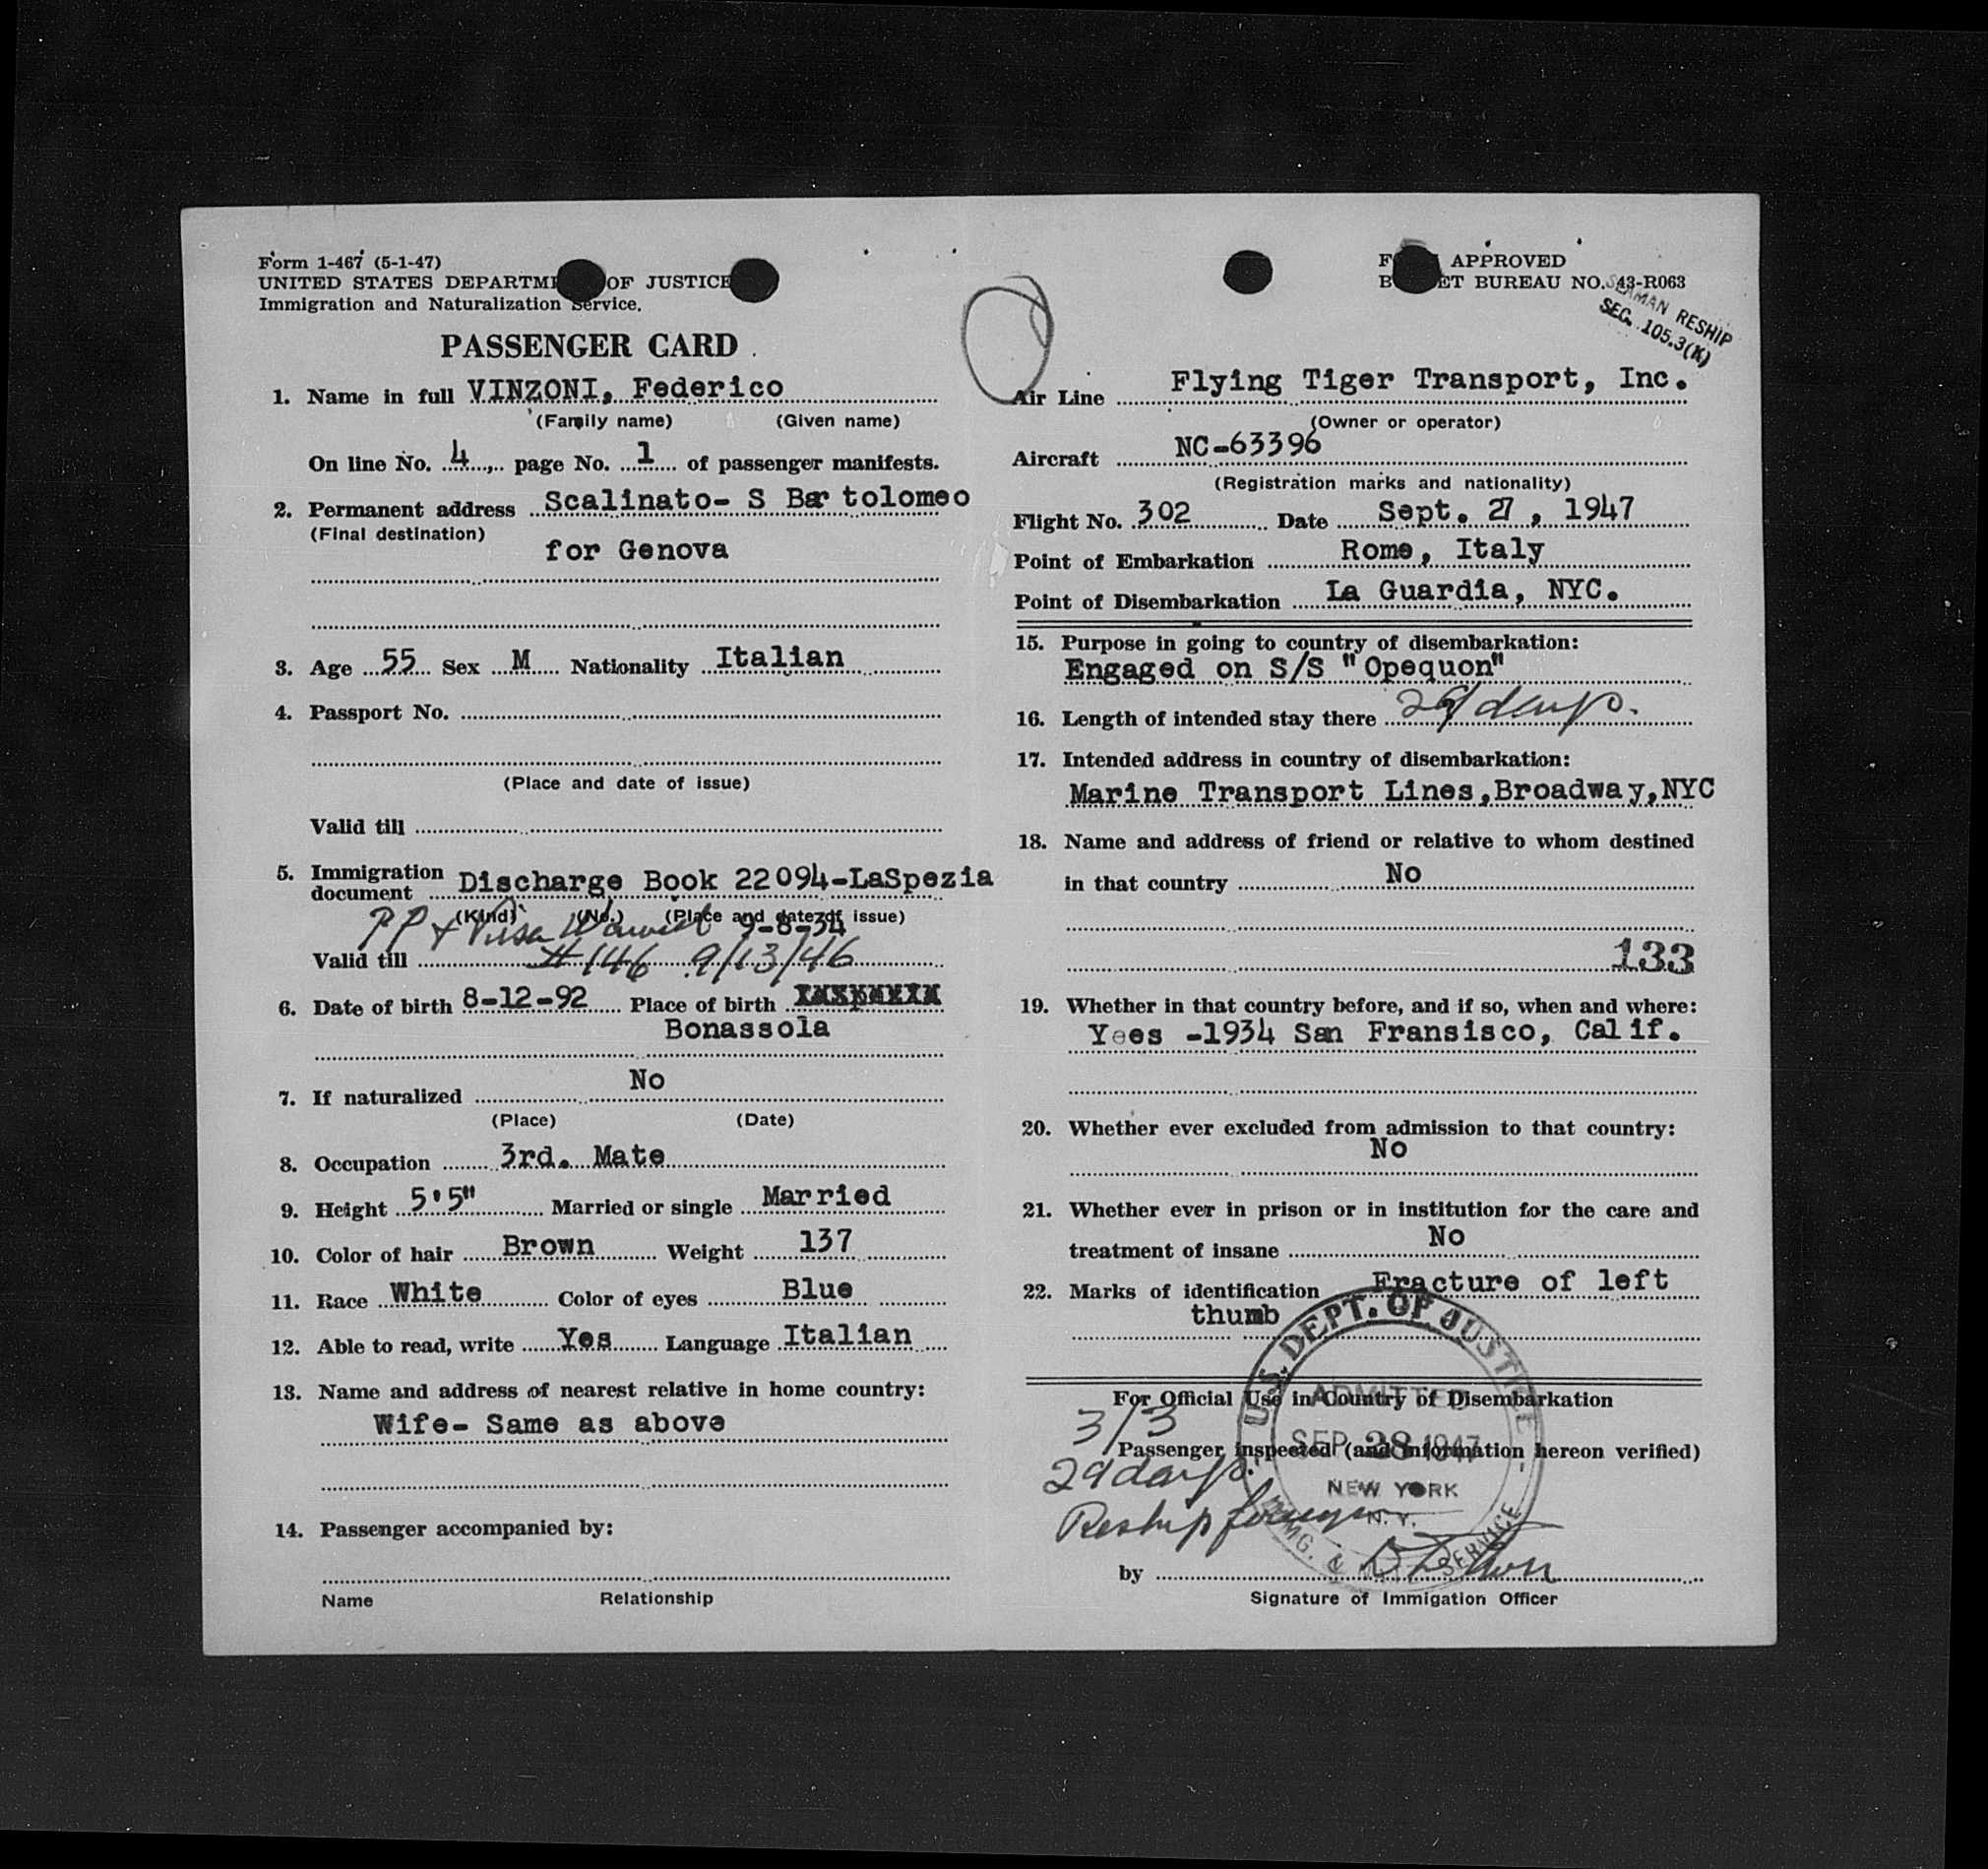 Form 1-467 (5-1-47)
UNITED STATES DEPARTME OF JUSTICE
Immigration and Naturalization Service.
PASSENGER CARD
1. Name in full VINZONI, Federico
(Family name) (Given name)
On line No. 4, page No. 1 of passenger manifests.
2. Permanent address Scalinato- S Bartolomeo
(Final destination)
for Genova
3. Age 55 Sex M Nationality Italian
4. Passport No.
(Place and date of issue)
Valid till
5. Immigration
document Discharge Book 22094-LaSpezia
(Kind) (No.) (Place and date of issue)
9-8-34
PP + Visa
Valid till #146 9/13/46
6. Date of birth 8-12-92 Place of birth
Bonassola
7. If naturalized No
(Place) (Date)
8. Occupation 3rd. Mate
9. Height 5'5" Married or single Married
10. Color of hair Brown Weight 137
11. Race White Color of eyes Blue
12. Able to read, write Yes Language Italian
13. Name and address of nearest relative in home country:
Wife- Same as above
14. Passenger accompanied by:
Name Relationship
APPROVED
ET BUREAU NO. 43-R063
SEAMAN RESHIP
SEC. 105.3(K)
Air Line Flying Tiger Transport, Inc.
(Owner or operator)
Aircraft NC-63396
(Registration marks and nationality)
Flight No. 302 Date Sept. 27, 1947
Point of Embarkation Rome, Italy
Point of Disembarkation La Guardia, NYC.
15. Purpose in going to country of disembarkation:
Engaged on S/S "Opequon"
16. Length of intended stay there 29 days.
17. Intended address in country of disembarkation:
Marine Transport Lines,Broadway,NYC
18. Name and address of friend or relative to whom destined
in that country No
133
19. Whether in that country before, and if so, when and where:
Yees -1934 San Fransisco, Calif.
20. Whether ever excluded from admission to that country:
No
21. Whether ever in prison or in institution for the care and
treatment of insane No
22. Marks of identification Fracture of left
thumb
For Official Use in Country of Disembarkation
3/3
Passenger inspected (and information hereon verified)
29 days.
Reship foreign
U.S. DEPT. OF JUSTICE
ADMITTED
SEP 28 1947
NEW YORK
N.Y.
IMMG. & SERVICE
by
Signature of Immigation Officer